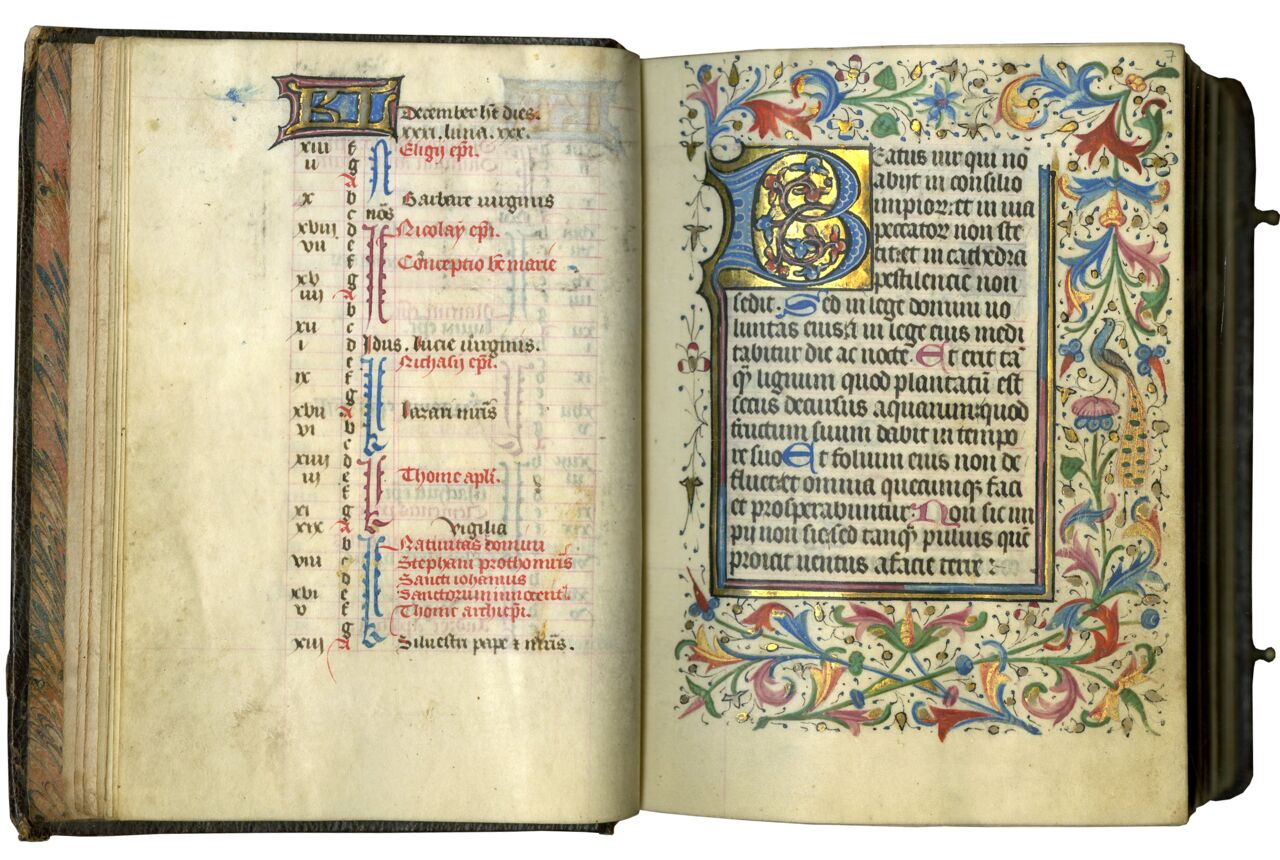 KL December ht dies.
xxxi. luna. xxx.
xiii f Eligij epi.
ii g
A
x b Barbare uirginis
c nōs
xviij d Nicolay epi.
vii e
f Cōceptio bē marie
xv g
iiij A
b
xii c
i d Idus. lucie uirginis.
e Nichasij epi.
ix f
g
xvii A lazari mr̄is
vi b
c
xiiij d
iij e Thome apli.
f
xi g
xix A Vigilia
b Natiuitas domini
viii c Stephani prothomr̄is
d Sancti iohannis
xvi e Sanctorum innocentū
v f Thome archiepi.
g
xiij A Siluestri pape ⁊ mr̄is.
7
Beatus uir qui nō
abijt in consilio
impiorꝫ: et in uia
peccatorꝫ non ste
tit: et in cathedra
pestilencie non
sedit. Sed in lege domini uo
luntas eius: ⁊ in lege eius medi
tabitur die ac nocte. Et erit tā
qꝫ lignum quod plantatū est
secus decursus aquarum: quod
fructum suum dabit in tempo
re suo Et folium eius non de
fluet: et omnia quecumqꝫ faci
et prosperabuntur. Non sic im
pij non sic: sed tanqꝫ puluis quē
proicit uentus a facie terre: